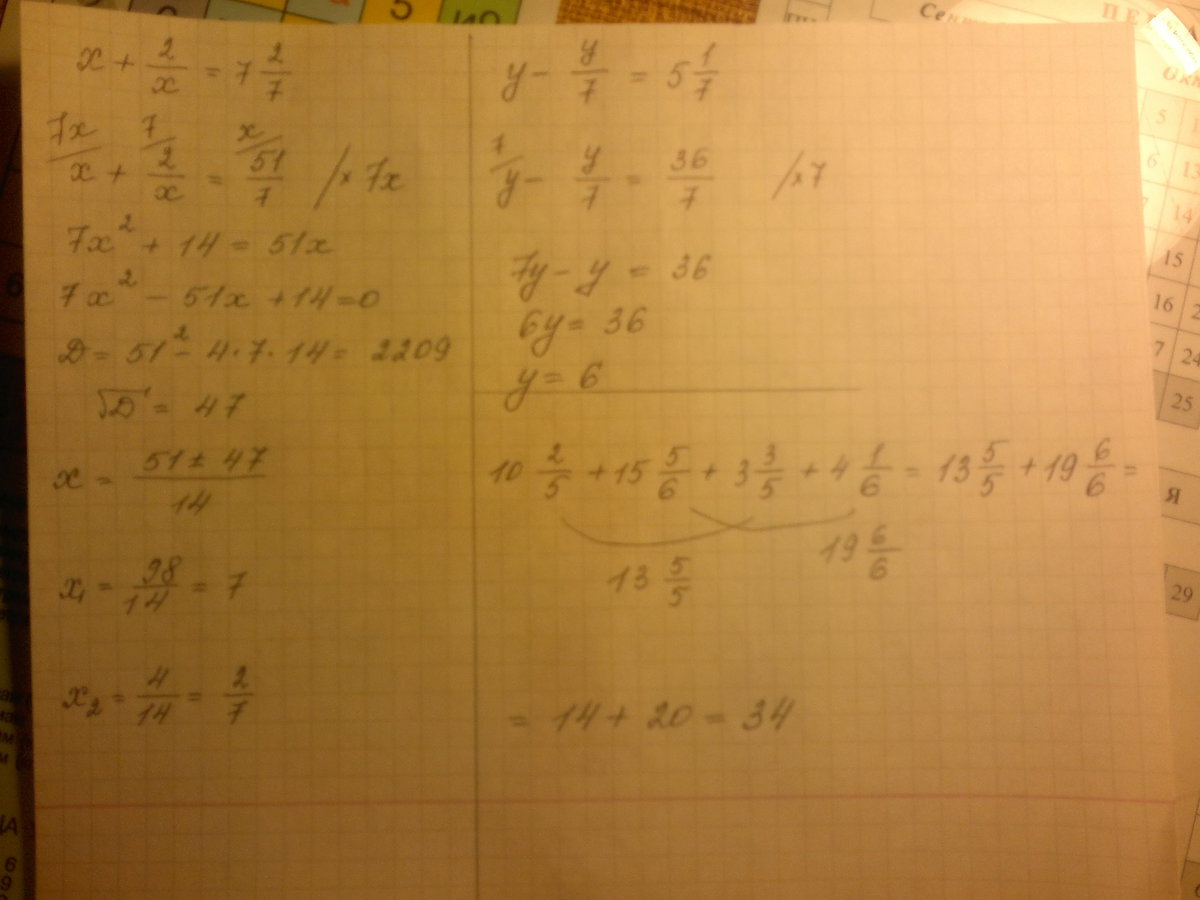 x + 2/x = 7 2/7
7x/x + 7/2/x = x/51/7 /× 7x
7x² + 14 = 51x
7x² - 51x + 14 = 0
D = 51² - 4·7·14 = 2209
√D = 47
x = 51 ± 47 / 14
x₁ = 98/14 = 7
x₂ = 4/14 = 2/7
y - y/7 = 5 1/7
7/y - y/7 = 36/7 /×7
7y - y = 36
6y = 36
y = 6
10 2/5 + 15 5/6 + 3 3/5 + 4 1/6 = 13 5/5 + 19 6/6 =
13 5/5 19 6/6
= 14 + 20 = 34
5
6
15
16
7
24
25
Я
29
6
9